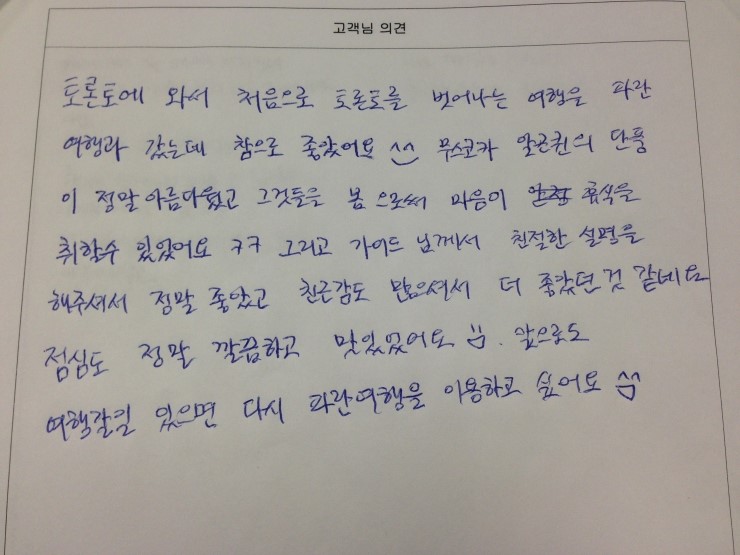 고객님 의견
토론토에 와서 처음으로 토론토를 벗어나는 여행은 파란
여행과 갔는데 참으로 좋았어요 ^^ 무스코카 알곤퀸의 단풍
이 정말 아름다웠고 그것들을 봄 으로써 마음이 휴식을
취할수 있었어요 ㅋㅋ 그리고 가이드 님께서 친절한 설명을
해주셔서 정말 좋았고 친근감도 많으셔서 더 좋았던 것 같네요
점심도 정말 깔끔하고 맛있었어요 :). 앞으로도
여행갈일 있으면 다시 파란여행을 이용하고 싶어요 ^^